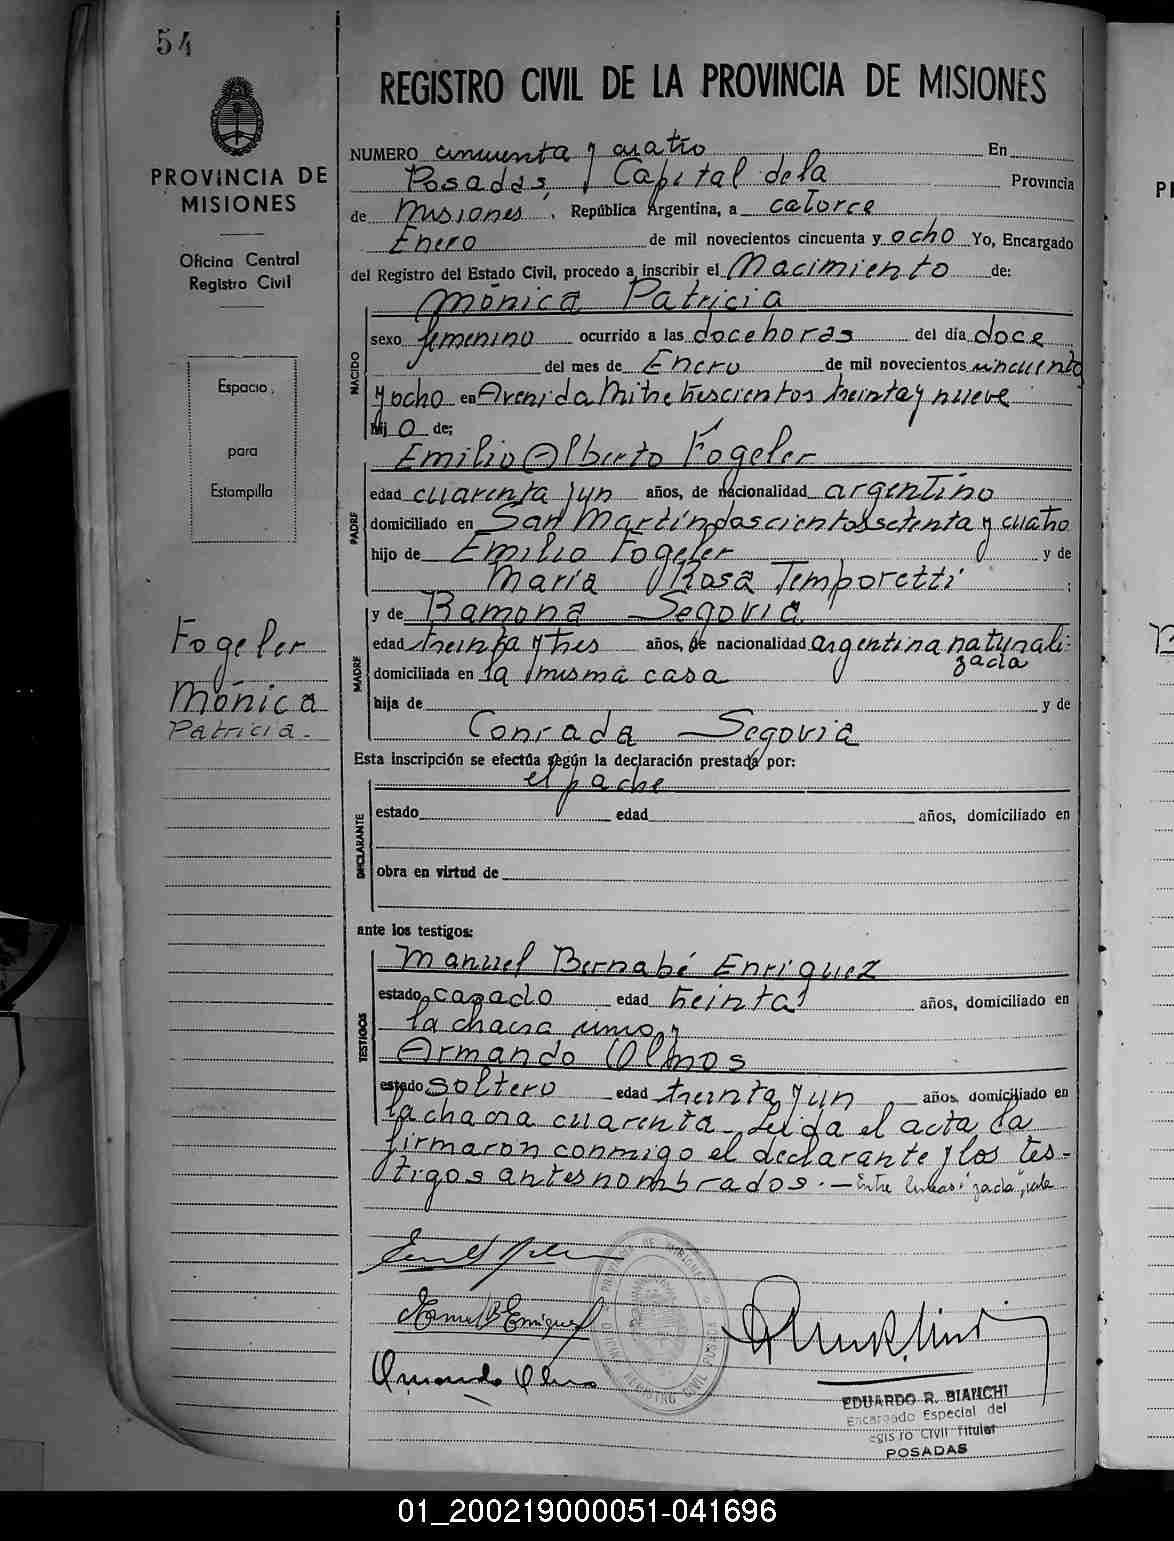 54
PROVINCIA DE
MISIONES
Oficina Central
Registro Civil
Espacio
para
Estampilla
Fogeler
Mónica
Patricia.-
REGISTRO CIVIL DE LA PROVINCIA DE MISIONES
NUMERO cincuenta y cuatro En
Posadas, Capital de la Provincia
de Misiones, República Argentina, a catorce
Enero de mil novecientos cincuenta y ocho Yo, Encargado
del Registro del Estado Civil, procedo a inscribir el Nacimiento de:
Mónica Patricia
NACIDO
sexo femenino ocurrido a las doce horas del día doce
del mes de Enero de mil novecientos cincuenta
y ocho en Avenida Mitre trescientos treinta y nueve
hijo de;
Emilio Alberto Fogeler
PADRE
edad cuarenta y un años, de nacionalidad argentino
domiciliado en San Martín doscientos setenta y cuatro
hijo de Emilio Fogeler y de
María Rosa Temporetti ;
y de Ramona Segovia
MADRE
edad treinta y tres años, de nacionalidad argentina naturali-
zada
domiciliada en la misma casa
hija de y de
Conrada Segovia
Esta inscripción se efectúa según la declaración prestada por:
el padre
DECLARANTE
estado edad años, domiciliado en
obra en virtud de
ante los testigos:
Manuel Bernabé Enriquez
TESTIGOS
estado casado edad treinta años, domiciliado en
la chacra uno y
Armando Olmos
estado soltero edad treinta y un años, domiciliado en
la chacra cuarenta. Leida el acta la
firmaron conmigo el declarante y los tes-
tigos antes nombrados.- Entre lineas: "zada", vale
Manuel B Enriquez
Armando Olmos
PROVINCIA DE MISIONES
REGISTRO CIVIL
EDUARDO R. BIANCHI
Encargado Especial del
Registro Civil Titular
POSADAS
01_200219000051-041696